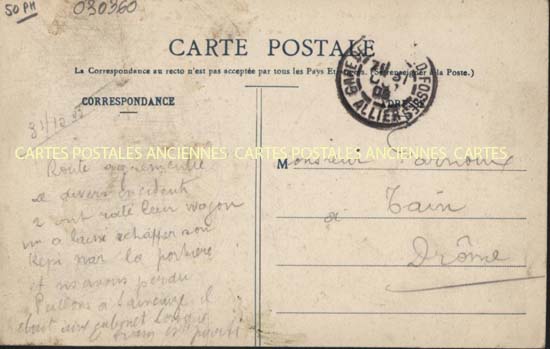 50 PH
030360
CARTE POSTALE
La Correspondance au recto n'est pas acceptée par tous les Pays Etrangers. (Se renseigner à la Poste.)
CORRESPONDANCE
ADRESSE
GARE ALLIER
31/12 05
CARTES POSTALES ANCIENNES CARTES POSTALES ANCIENNES CARTES POSTALES ANCIENNES
Monsieur
à
Tain
Drôme
Route agrémentée
de divers incidents
2 ont raté leur wagon
un a laissé échapper son
Képi par la portière
et nous avons perdu
il
était aux
train est parti